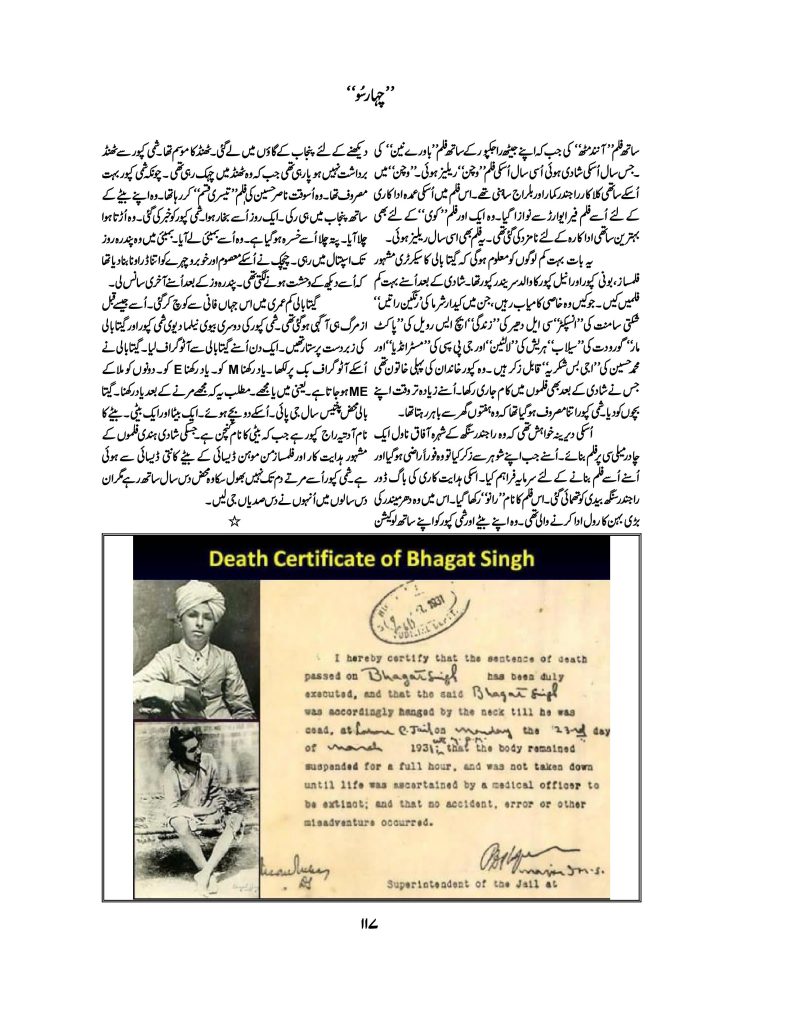 ”چہارسُو“
ساتھ فلم”آنندمٹھ“ کی جب کہ اپنے جیٹھ راجکپور کے ساتھ فلم”باورے نین“ کی
۔جس سال اُسکی شادی ہوئی اُسی سال اُسکی فلم”وچن“ ریلیز ہوئی۔”وچن“ میں
اُسکے ساتھی کلاکار راجندر کمار اور بلراج ساہنی تھے۔اس فلم میں اُسکی عمدہ اداکاری
کے لئے اُسے فلم فیر ایوارڑ سے نوازا گیا۔وہ ایک اور فلم”کوی“ کے لئے بھی
بہترین ساتھی اداکارہ کے لئے نامزد کی گئی تھی۔یہ فلم بھی اسی سال ریلیز ہوئی۔
یہ بات بہت کم لوگوں کو معلوم ہوگی کہ گیتا بالی کا سیکرٹری مشہور
فلمساز،بونی کپور اور انیل کپور کا والد سریندر کپور تھا۔شادی کے بعد اُسنے بہت کم
فلمیں کیں ۔جو کیں وہ خاصی کامیاب رہیں،جن میں کیدار شرما کی”رنگین راتیں“
شکتی سامنت کی”انسپکٹر“سی ایل دھیر کی”زندگی“ایچ ایس رویل کی”پاکٹ
مار“گورودت کی”سیلاب“ہریش کی”لالٹین“اور جی پی سپی کی”مسٹر انڈیا“اور
محمد حسین کی”اجی بس شکریہ“قابل ذکر ہیں ۔وہ کپور خاندان کی پہلی خاتون تھی
جس نے شادی کے بعد بھی فلموں میں کام جاری رکھا۔اُسنے زیادہ تر وقت اپنے
بچوں کو دیا۔شمی کپور اتنا مصروف ہوگیا تھا کہ وہ ہفتوں گھر سے باہر رہتا تھا۔
اُسکی دیرینہ خواہش تھی کہ وہ راجندر سنگھ کے شہرہ آفاق ناول ایک
چادر میلی سی پر فلم بنائے۔اُسنے جب اپنے شوہر سے ذکر کیا تو وہ فوراً راضی ہوگیا اور
اُسنے اُسے فلم بنانے کے لئے سرمایہ فراہم کیا۔اسکی ہدایت کاری کی باگ ڈور
راجندر سنگھ بیدی کو تھمائی گئی۔اس فلم کا نام”رانو“رکھا گیا۔اس میں وہ دھرمیندر کی
بڑی بہن کا رول ادا کرنے والی تھی۔وہ اپنے بیٹے اور شمی کپور کو اپنے ساتھ لوکیشن
دیکھنے کے لئے پنجاب کے گاؤں میں لے گئی۔ٹھنڈ کا موسم تھا۔شمی کپور سے ٹھنڈ
برداشت نہیں ہو پا رہی تھی جب کہ وہ ٹھنڈ میں چہک رہی تھی ۔چونکہ شمی کپور بہت
مصروف تھا۔وہ اُسوقت ناصر حسین کی فلم”تیسری قسم“کر رہا تھا۔وہ اپنے بیٹے کے
ساتھ پنجاب میں ہی رکی ۔ایک روز اُسے بخار ہوا۔شمی کپور کو خبر کی گئی۔وہ اُڑتا ہوا
چلا آیا۔پتہ چلا اُسے خسرہ ہوگیا ہے۔وہ اُسے بمبئی لے آیا۔بمبئی میں وہ پندرہ روز
تک اسپتال میں رہی ۔چیچک نے اُسکے معصوم اور خوبرو چہرے کو اتنا ڈراونا بنا دیا تھا
کہ اُسے دیکھ کے وحشت ہونے لگتی تھی۔پندرہ روز کے بعد اُسنے آخری سانس لی۔
گیتا بالی کم عمری میں اس جہاں فانی سے کوچ کر گئی۔اُسے جیسے قبل
از مرگ ہی آگہی ہوگئی تھی۔شمی کپور کی دوسری بیوی نیلما دیوی شمی کپور اور گیتا بالی
کی زبردست پرستار تھیں۔ایک دن اُسنے گیتا بالی سے آٹو گراف لیا۔گیتا بالی نے
اُسکے آٹو گراف بک پر لکھا۔یاد رکھنا M کو۔یاد رکھنا E کو۔دونوں کو ملا کے
ME ہو جاتا ہے۔یعنی میں یا مجھے۔مطلب یہ کہ مجھے مرنے کے بعد یاد رکھنا۔گیتا
بالی محض پنتیس سال جی پائی۔اُسکے دو بچے ہوئے۔ایک بیٹا اور ایک بیٹی۔بیٹے کا
نام آدتیہ راج کپور ہے جب کہ بیٹی کا نام کنچن ہے۔جسکی شادی ہندی فلموں کے
مشہور ہدایت کار اور فلمساز من موہن ڈیسائی کے بیٹے کانتی ڈیسائی سے ہوئی
ہے۔شمی کپور اُسے مرتے دم تک نہیں بھول سکا۔وہ محض دس سال ساتھ رہے مگر ان
دس سالوں میں اُنہوں نے دس صدیاں جی لیں۔
☆
Death Certificate of Bhagat Singh
2. 1931
I hereby certify that the sentence of death
passed on Bhagat Singh has been duly
executed, and that the said Bhagat Singh
was accordingly hanged by the neck till he was
dead, at Lahore C. Jail on Monday the 23rd day
of March 1931; at 7 P.M. that the body remained
suspended for a full hour, and was not taken down
until life was ascertained by a medical officer to
be extinct; and that no accident, error or other
misadventure occurred.
Superintendent of the Jail at
۱۱۷